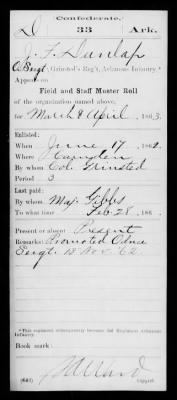 Confederate.
D 33 Ark.
J. F. Dunlap
O. Sergt, Grinsted's Reg't, Arkansas Infantry.*
Appears on
Field and Staff Muster Roll
of the organization named above,
for March & April, 1863.
Enlisted:
When June 17, 1862.
Where Hampton
By whom Col. Grinsted
Period 3
Last paid:
By whom Maj. Gibbs
To what time Feb 28, 186 .
Present or absent Present
Remarks: Promoted Odnce
Sergt. 18 Nov. 62.
*This regiment subsequently became 33d Regiment Arkansas
Infantry.
Book mark:
(661) Copyist.